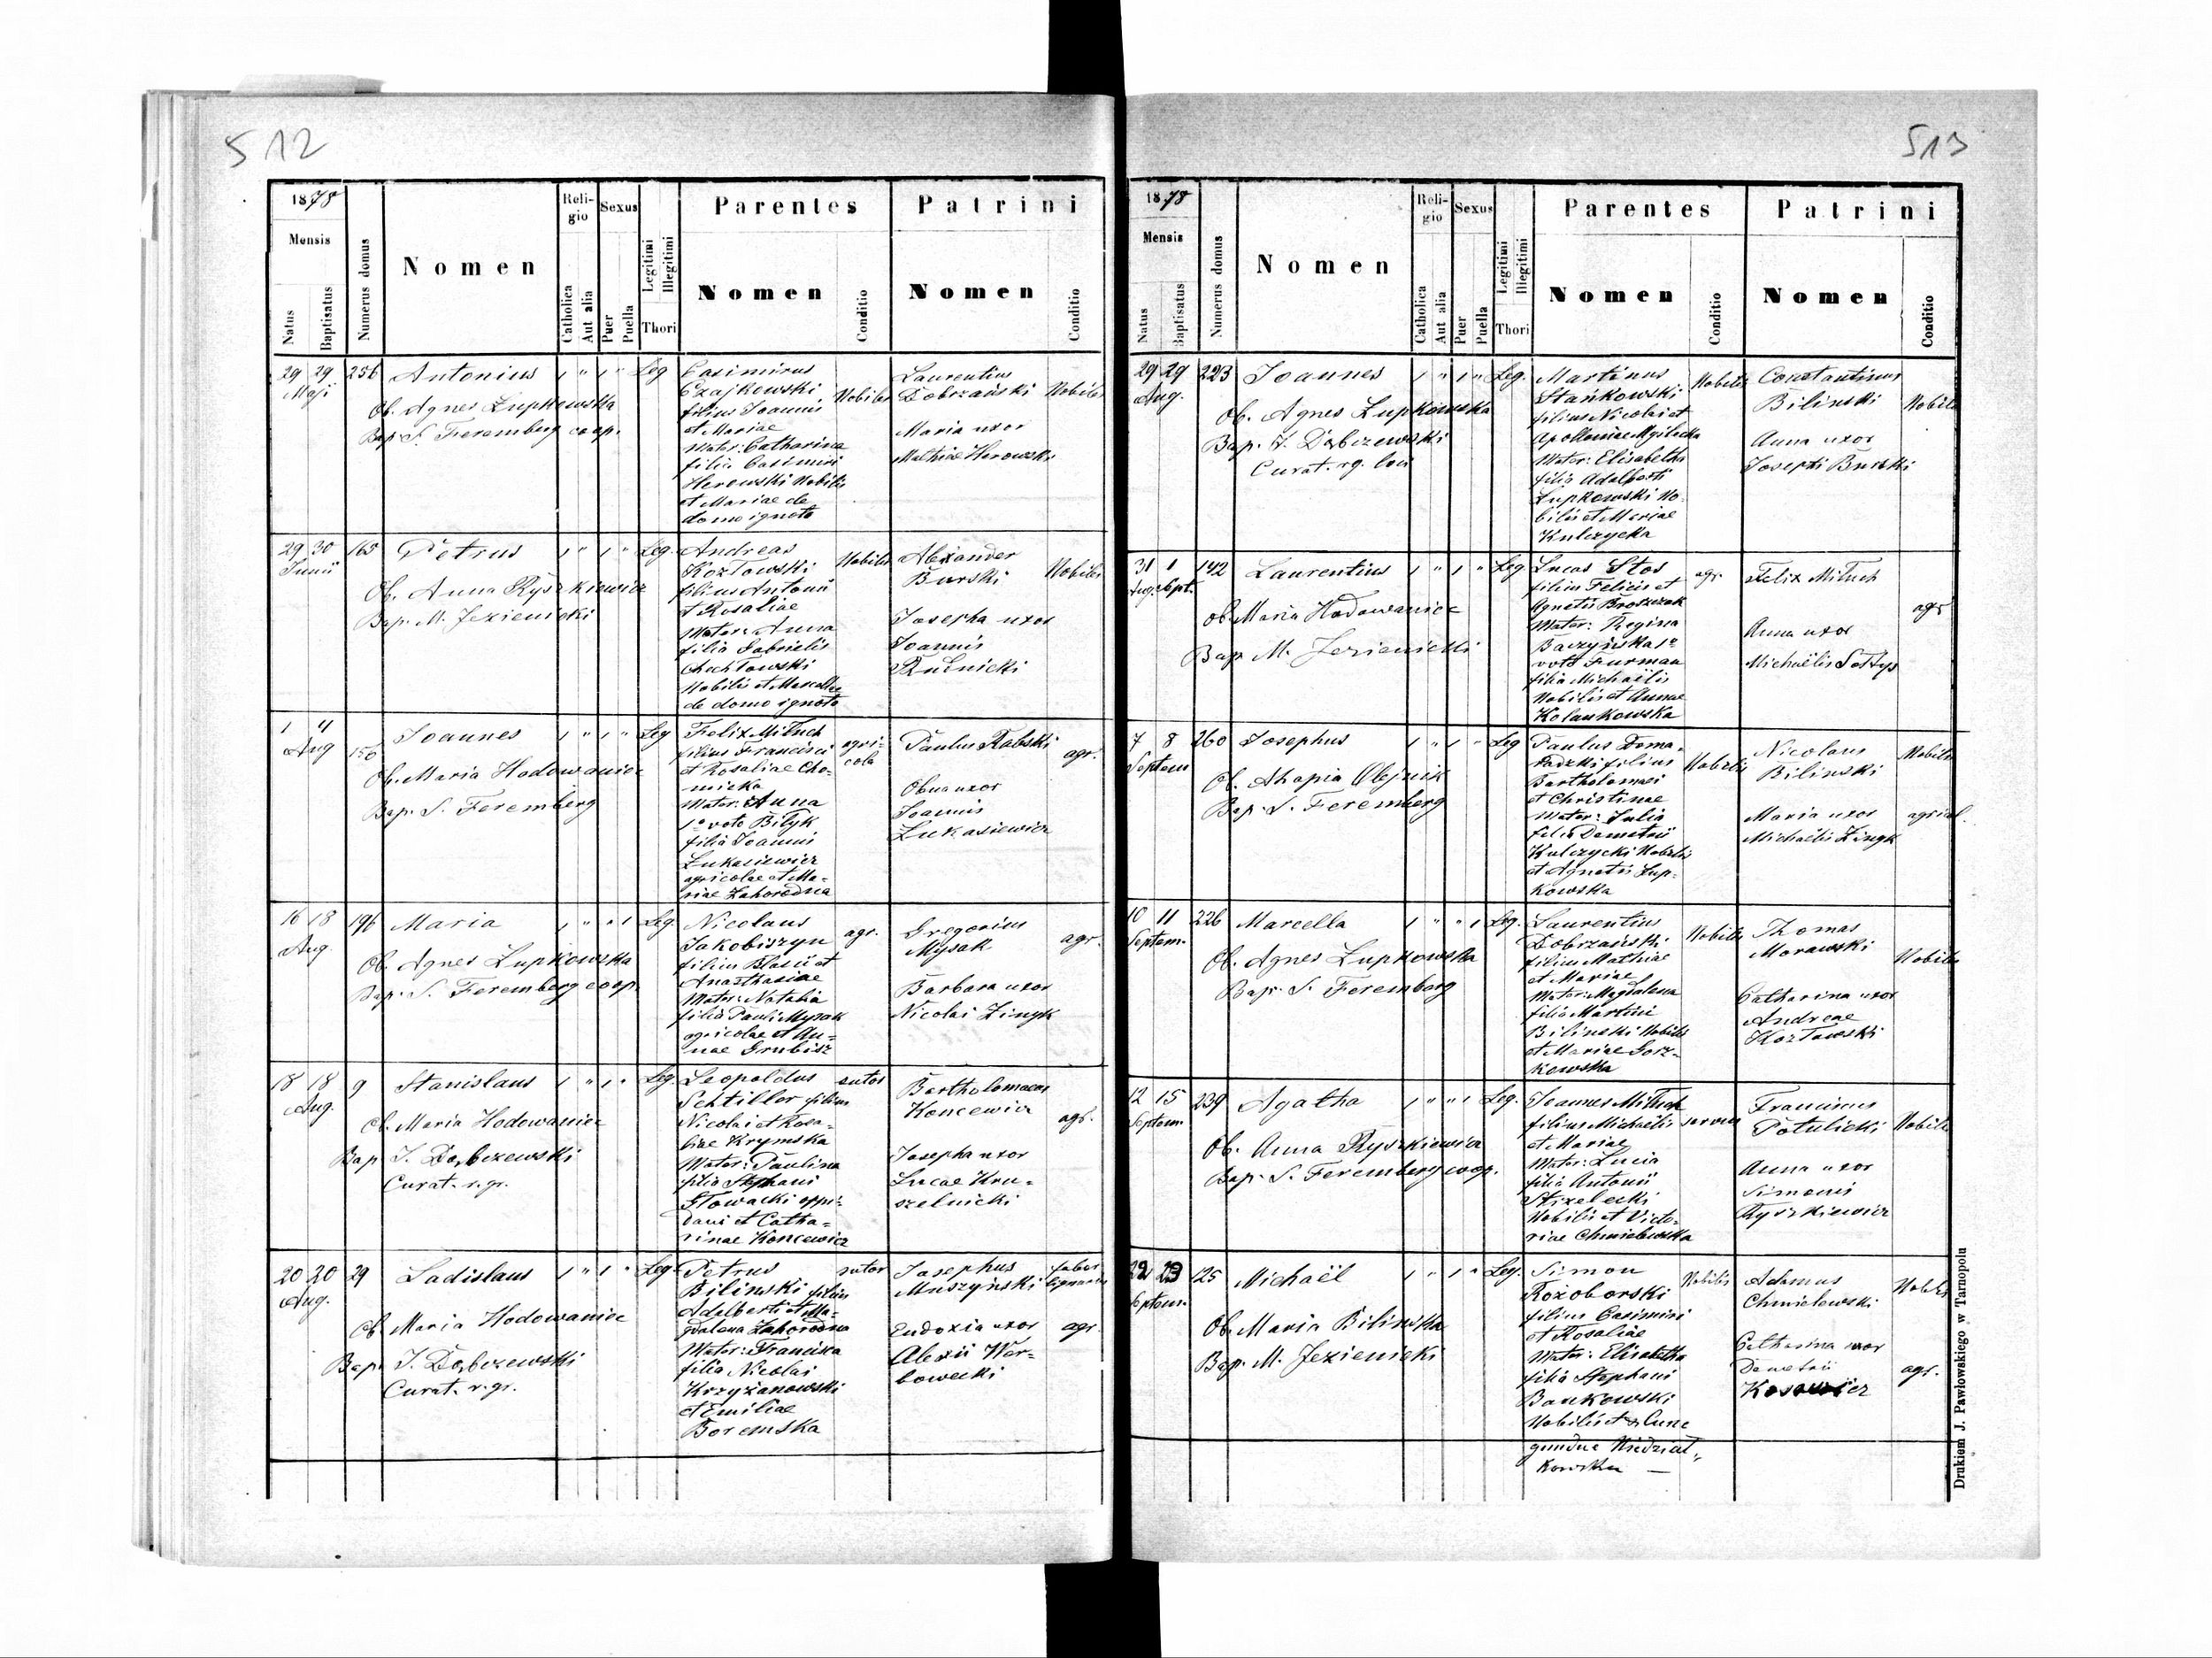 512
1878
Mensis
Natus
Baptisatus
Numerus domus
Nomen
Religio
Catholica
Aut alia
Sexus
Puer
Puella
Legitimi
Illegitimi
Thori
Parentes
Nomen
Conditio
Patrini
Nomen
Conditio
29 29 256 Antonius 1 " 1 " Leg
Maji
Ob. Agnes Łupkowska
Bap. S. Feremberg coop.
Casimirus
Czajkowski
filius Joannis
et Mariae
Mater: Catharina
filia Casimiri
Herowski Nobilis
et Mariae de
domo ignota
Nobilis
Laurentius
Dobrzański
Nobilis
Maria uxor
Mathiae Herowski
29 30 165 Petrus 1 " 1 " Leg.
Junii
Ob. Anna Ryszkiewicz
Bap. M. Jezienicki
Andreas
Kozłowski
filius Antonii
et Rosaliae
Mater: Anna
filia Gabrielis
Chochłowski
Nobilis et Marcellae
de domo ignota
Nobilis
Alexander
Burski
Nobilis
Josepha uxor
Joannis
Rudnicki
1 4 150 Joannes 1 " 1 " Leg
Aug
Ob. Maria Hodowaniec
Bap. S. Feremberg
Felix Miłuch
filius Francisci
et Rosaliae Cho-
micka
Mater: Anna
1º voto Biłyk
filia Joannis
Łukasiewicz
agricolae et Ma-
riae Zahorodna
agri-
cola
Paulus Rabski
agr.
uxor
Joannis
Łukasiewicz
16 18 196 Maria 1 " " 1 Leg.
Aug.
Ob. Agnes Łupkowska
Bap. S. Feremberg coop.
Nicolaus
Jakobiszyn
filius Blasii et
Anasthasiae
Mater: Natalia
filia Pauli Mysak
agricolae et An-
nae Grubisz
agr.
Gregorius
Mysak
agr.
Barbara uxor
Nicolai Zingk
18 18 9 Stanislaus 1 " 1 " Leg
Aug.
Ob. Maria Hodowaniec
Bap J. Dąbczewski
Curat. r. gr.
Leopoldus
Schtiller filius
Nicolai et Rosa-
liae Krymska
Mater: Paulina
filia Stephani
Słowacki oppi-
dani et Catha-
rinae Koncewicz
sutor
Bartholomaeus
Koncewicz
agr.
Josepha uxor
Lucae Kru-
szelnicki
20 20 29 Ladislaus 1 " 1 " Leg.
Aug.
Ob. Maria Hodowaniec
Bap. J. Dąbczewski
Curat. r. gr.
Petrus
Bilinski filius
Adalberti et Ma-
gdalena Zahorodna
Mater: Franciska
filia Nicolai
Krzyżanowski
et Emiliae
Boremska
sutor
Josephus
Muszyński
faber
lignarius
Eudoxia uxor
agr.
Alexii Wer-
bowecki
513
1878
Mensis
Natus
Baptisatus
Numerus domus
Nomen
Religio
Catholica
Aut alia
Sexus
Puer
Puella
Legitimi
Illegitimi
Thori
Parentes
Nomen
Conditio
Patrini
Nomen
Conditio
29 29 223 Joannes 1 " 1 " Leg.
Aug.
Ob. Agnes Łupkowska
Bap. J. Dąbczewski
Curat. rg. loci
Martinus
Stańkowski
filius Nicolai et
Apolloniae
Mater: Elisabetha
filia Adalberti
Łupkowski No-
bilis et Mariae
Kulczycka
Nobilis
Constantinus
Bilinski
Nobilis
Anna uxor
Josephi Burski
31 1 142 Laurentius 1 " 1 " Leg
Aug. Sept.
Ob. Maria Hodowaniec
Bap. M. Jezienicki
Lucas Stos
filius Felicis et
Agnetis Broszczak
Mater: Regina
Baczyńska 1º
voto Furman
filia Michaëlis
Nobilis et Annae
Kolankowska
agr.
Felix Miłuch
agr
Anna uxor
Michaëlis Sołtys
7 8 260 Josephus 1 " 1 " Leg
Septem
Ob. Ahapia Olejnik
Bap. S. Feremberg
Paulus Doma-
radzki filius
Bartholomaei
et Christinae
Mater: Julia
filia Demetrii
Kulczycki Nobilis
et Agnetis Łup-
kowska
Nobilis
Nicolaus
Bilinski
Nobilis
Maria uxor
agricol.
Michaëlis Zingk
10 11 226 Marcella 1 " " 1 Leg.
Septem.
Ob. Agnes Łupkowska
Bap. S. Feremberg
Laurentius
Dobrzański
filius Mathiae
et Mariae
Mater: Magdalena
filia Martini
Bilinski Nobilis
et Mariae Gorz-
kowska
Nobilis
Thomas
Morawski
Nobilis
Catharina uxor
Andreae
Kozłowski
12 15 239 Agatha 1 " " 1 Leg.
Septem.
Ob. Anna Ryszkiewicz
Bap. S. Feremberg coop.
Joannes Miłuch
filius Michaëlis
et Mariae
Mater: Lucia
filia Antonii
Strzelecki
Nobilis et Victo-
riae Chmielewska
servus
Franciscus
Potulicki
Nobilis
Anna uxor
Simonis
Ryszkiewicz
22 23 125 Michaël 1 " 1 " Leg.
Septem.
Ob. Maria Bilinska
Bap. M. Jezienicki
Simon
Rozborski
filius Casimiri
et Rosaliae
Mater: Elisabetha
filia Stephani
Bankowski
Nobilis et Cune
gundae Niedział-
kowska
Nobilis
Adamus
Chmielowski
Nobilis
Catharina uxor
Demetrii
agr.
Drukiem J. Pawłowskiego w Tarnopolu